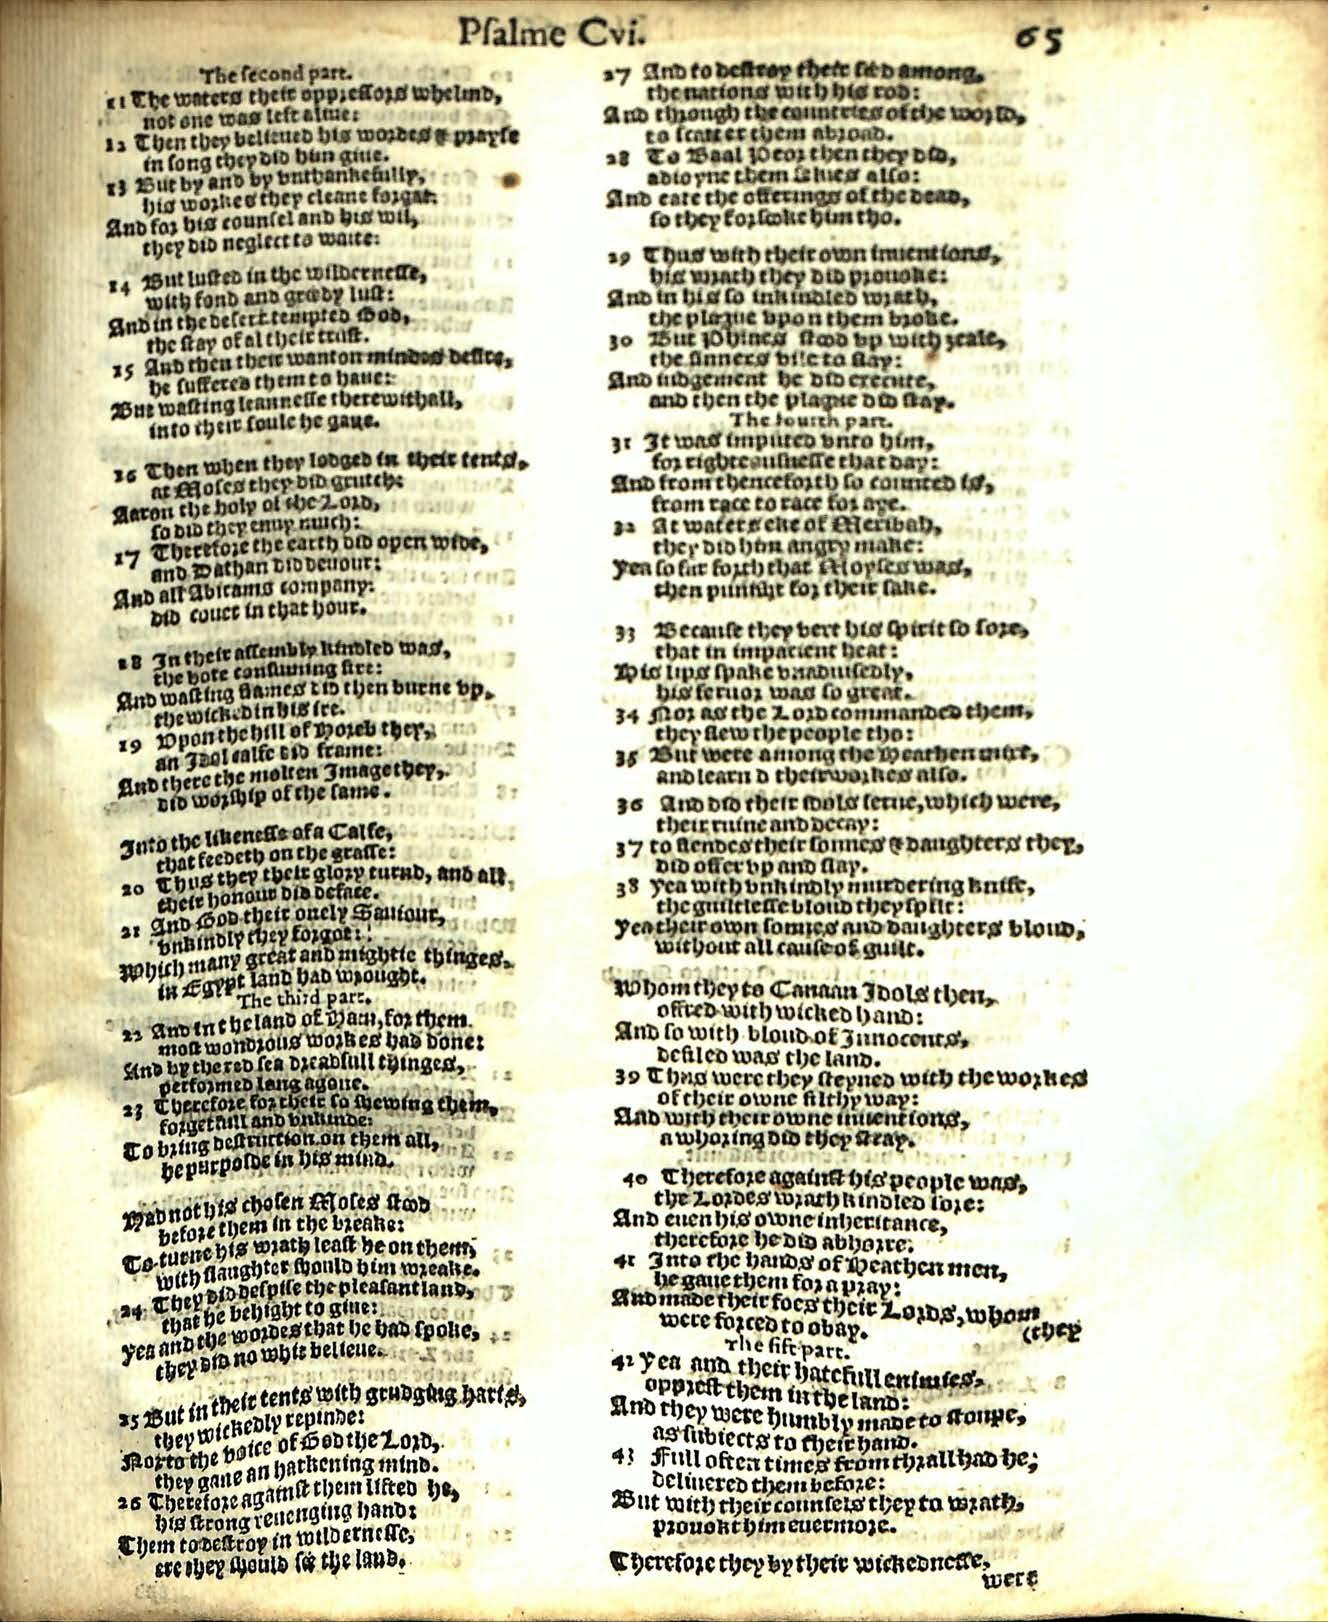 Psalme Cvi.
65
The second part.
11 The waters their oppressors whelmd,
not one was left aliue:
12 Then they belieued his wordes & prayse
in song they did him giue.
13 But by and by vnthankefully,
his workes they cleane forgat:
And for his counsel and his wil,
they did neglect to waite:
14 But lusted in the wildernesse,
with fond and greedy lust:
And in the desert tempted God,
the stay of al their trust.
15 And then their wanton mindes desire,
he suffered them to haue:
But wasting leannesse therewithall,
into their soule he gaue.
16 Then when they lodged in their tents,
at Moses they did grutch:
Aaron the holy of the Lord,
so did they enuy much:
17 Therefore the earth did open wide,
and Dathan did deuour:
And all Abirams company:
did couer in that hour.
18 In their assembly kindled was,
the hote consuming fire:
And wasting flames did then burne vp,
the wicked in his ire.
19 Vpon the hill of Horeb they,
an Idol calfe did frame:
And there the molten Image they,
did worship of the same.
Into the likenesse of a Calfe,
that feedeth on the grasse:
20 Thus they their glory turnd, and all
their honour did deface.
21 And God their onely Sauiour,
vnkindly they forgot:
Which many great and mightie thinges,
in Egypt land had wrought.
The third part.
22 And in the land of Ham, for them
most wondrous workes had done:
And by the red sea dreadfull thinges,
performed long agone.
23 Therefore for their so shewing them,
forgetfull and vnkinde:
To bring destruction on them all,
he purposde in his mind.
Had not his chosen Moses stood
before them in the breake:
To turne his wrath least he on them,
with slaughter should him wreake.
24 They did despise the pleasant land,
that he behight to giue:
Yea and the wordes that he had spoke,
they did no whit belieue.
25 But in their tents with grudging harts,
they wickedly repinde:
Nor to the voice of God the Lord,
they gaue an harkening mind.
26 Therefore against them lifted he,
his strong reuenging hand:
Them to destroy in wildernesse,
ere they should see the land.
27 And to destroy their seed among,
the nations with his rod:
And through the countries of the world,
to scatter them abroad.
28 To Baal Peor then they did,
adioyne them selues also:
And eate the offerings of the dead,
so they forsooke him tho.
29 Thus with their own inuentions,
his wrath they did prouoke:
And in his so inkindled wrath,
the plague vpon them broke.
30 But Phines stood vp with zeale,
the sinners vile to slay:
And iudgement he did execute,
and then the plague did stay.
The fourth part.
31 It was imputed vnto him,
for righteousnesse that day:
And from thenceforth so counted is,
from race to race for aye.
32 At waters eke of Meribah,
they did him angry make:
Yea so far forth that Moyses was,
then punisht for their sake.
33 Because they vext his spirit so sore,
that in impatient heat:
His lips spake vnaduisedly,
his feruor was so great.
34 Nor as the Lord commanded them,
they slew the people tho:
35 But were among the Heathen mixt,
and learnd their workes also.
36 And did their idols serue, which were,
their ruine and decay:
37 to fiendes their sonnes & daughters they,
did offer vp and slay.
38 Yea with vnkindly murdering knife,
the guiltlesse bloud they spilt:
Yea their own sonnes and daughters bloud,
without all cause of guilt.
Whom they to Canaan Idols then,
offred with wicked hand:
And so with bloud of Innocents,
defiled was the land.
39 Thus were they steyned with the workes
of their owne filthy way:
And with their owne inuentions,
a whoring did they stray.
40 Therefore against his people was,
the Lordes wrath kindled sore:
And euen his owne inheritance,
therefore he did abhorre:
41 Into the hands of Heathen men,
he gaue them for a pray:
And made their foes their Lords, whom
were forced to obay.
(they
The fift part.
42 Yea and their hatefull enimies,
opprest them in the land:
And they were humbly made to stoupe,
as subiects to their hand.
43 Full often times from thrall had he,
deliuered them before:
But with their counsels they to wrath,
prouokt him euermore.
Therefore they by their wickednesse,
were